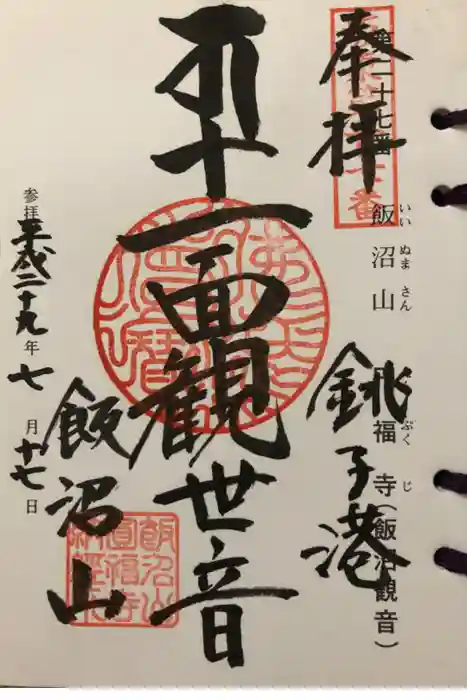 第二十七番 飯沼山 福寺(飯沼観音)
いい ぬま さん ぷく じ
奉拝 銚子港
十一面観世音
飯沼山
参拝 平成二十九年七月十七日
飯沼山
圓福寺